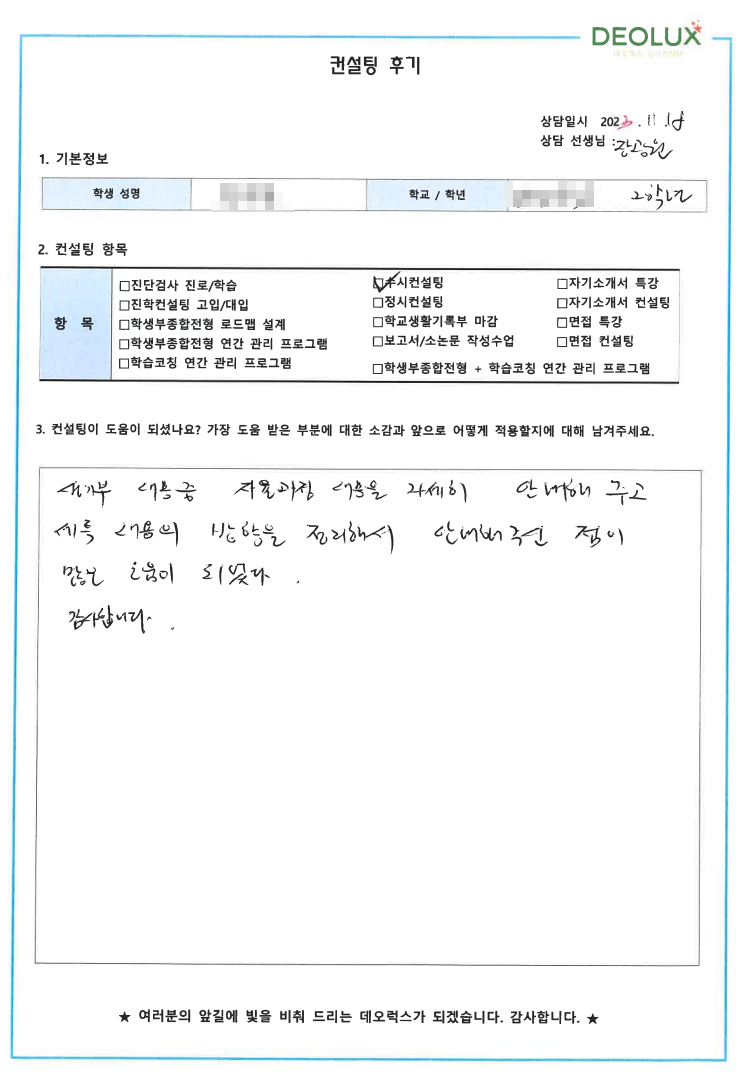 DEOLUX
컨설팅 후기
상담일시 2023.11.18
상담 선생님 :
1. 기본정보
학생 성명
학교 / 학년 2학년
2. 컨설팅 항목
항 목
□진단검사 진로/학습
□진학컨설팅 고입/대입
□학생부종합전형 로드맵 설계
□학생부종합전형 연간 관리 프로그램
□학습코칭 연간 관리 프로그램
☑수시컨설팅
□정시컨설팅
□학교생활기록부 마감
□보고서/소논문 작성수업
□학생부종합전형 + 학습코칭 연간 관리 프로그램
□자기소개서 특강
□자기소개서 컨설팅
□면접 특강
□면접 컨설팅
3. 컨설팅이 도움이 되셨나요? 가장 도움 받은 부분에 대한 소감과 앞으로 어떻게 적용할지에 대해 남겨주세요.
생기부 내용중 자율과정 내용을 자세히 안내해 주고
세특 내용의 방향을 정리해서 안내해주신 점이
많은 도움이 되었다.
감사합니다.
★ 여러분의 앞길에 빛을 비춰 드리는 데오럭스가 되겠습니다. 감사합니다. ★